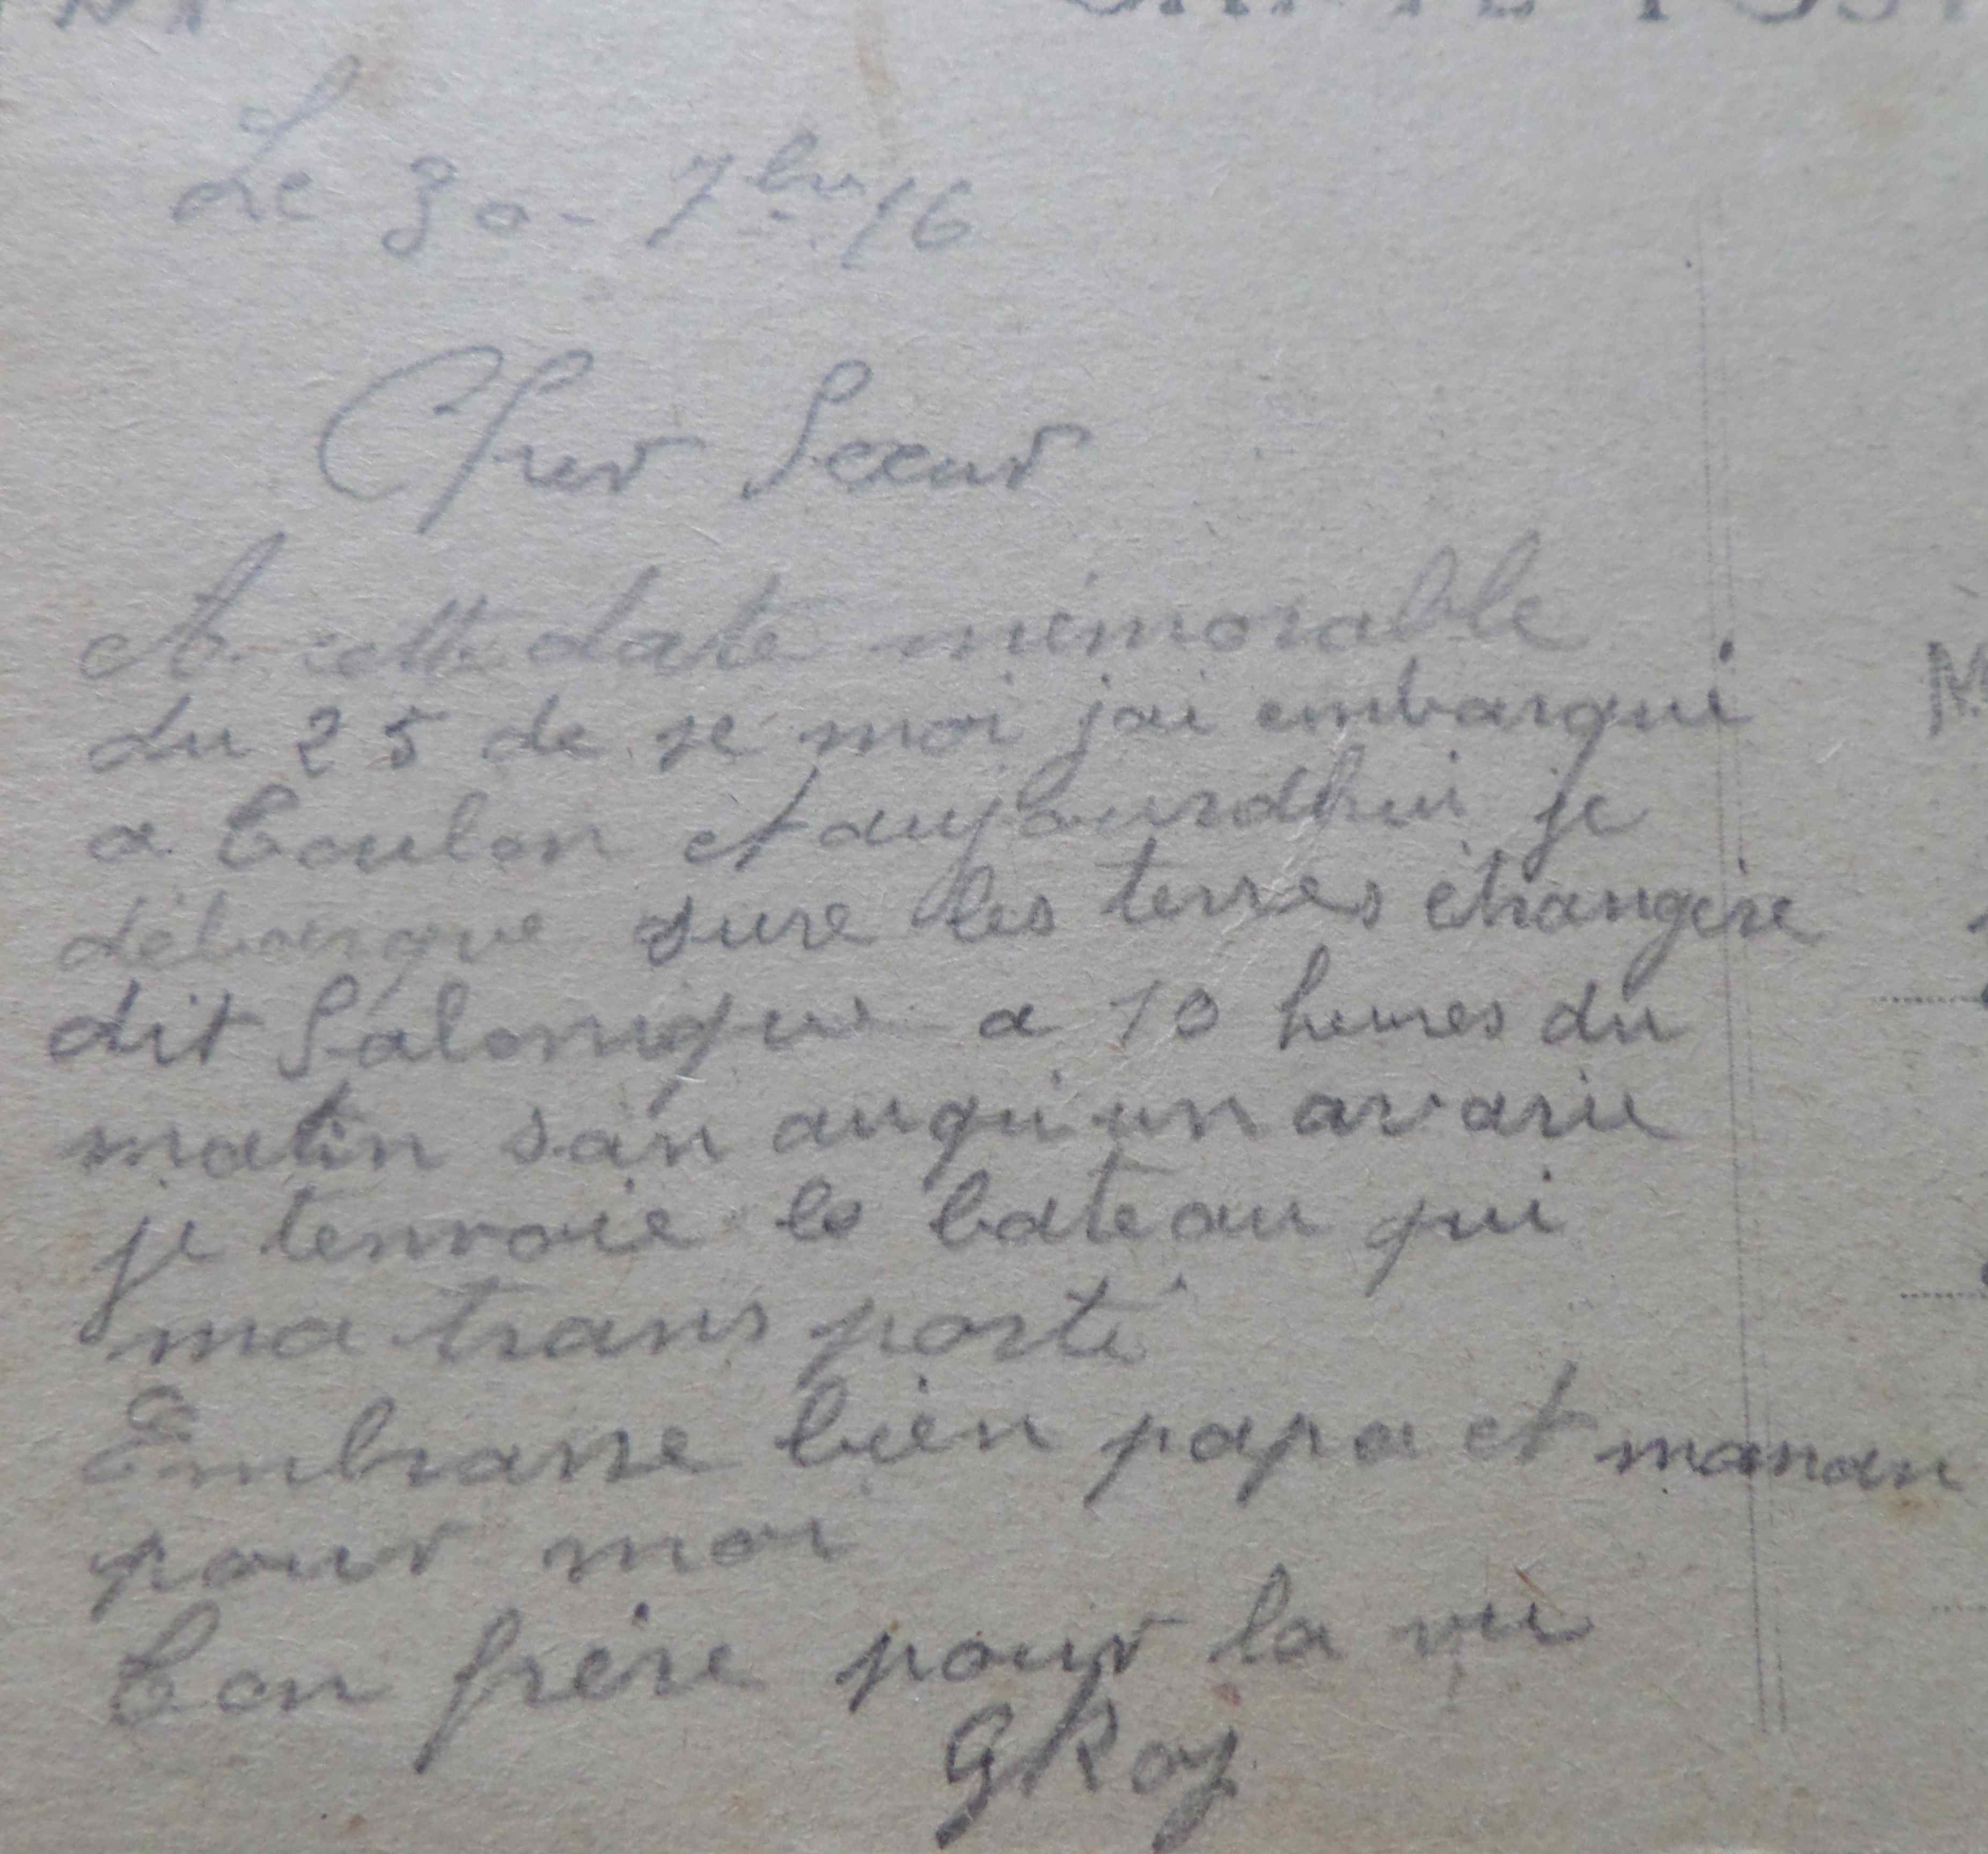 CARTE POST
Le 30 - 7bre 16
Cher Sœur
A cette date mémorable
du 25 de se moi jai embarqué
a Toulon et aujourdhui je
débarque sure les terres étrangère
dit Salonique a 10 heures du
matin san auqu'un avarie
je tenvoie le bateau qui
ma trans porté
Embrasse bien papa et maman
pour moi
Ton frère pour la vie
GRoy
M